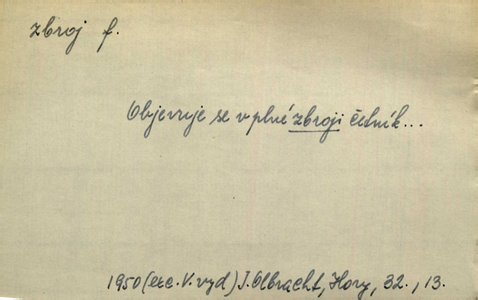 zbroj f.
Objevuje se v plné zbroji četník...
1950 (exc. V. vyd) I. Olbracht, Hory, 32., 13.